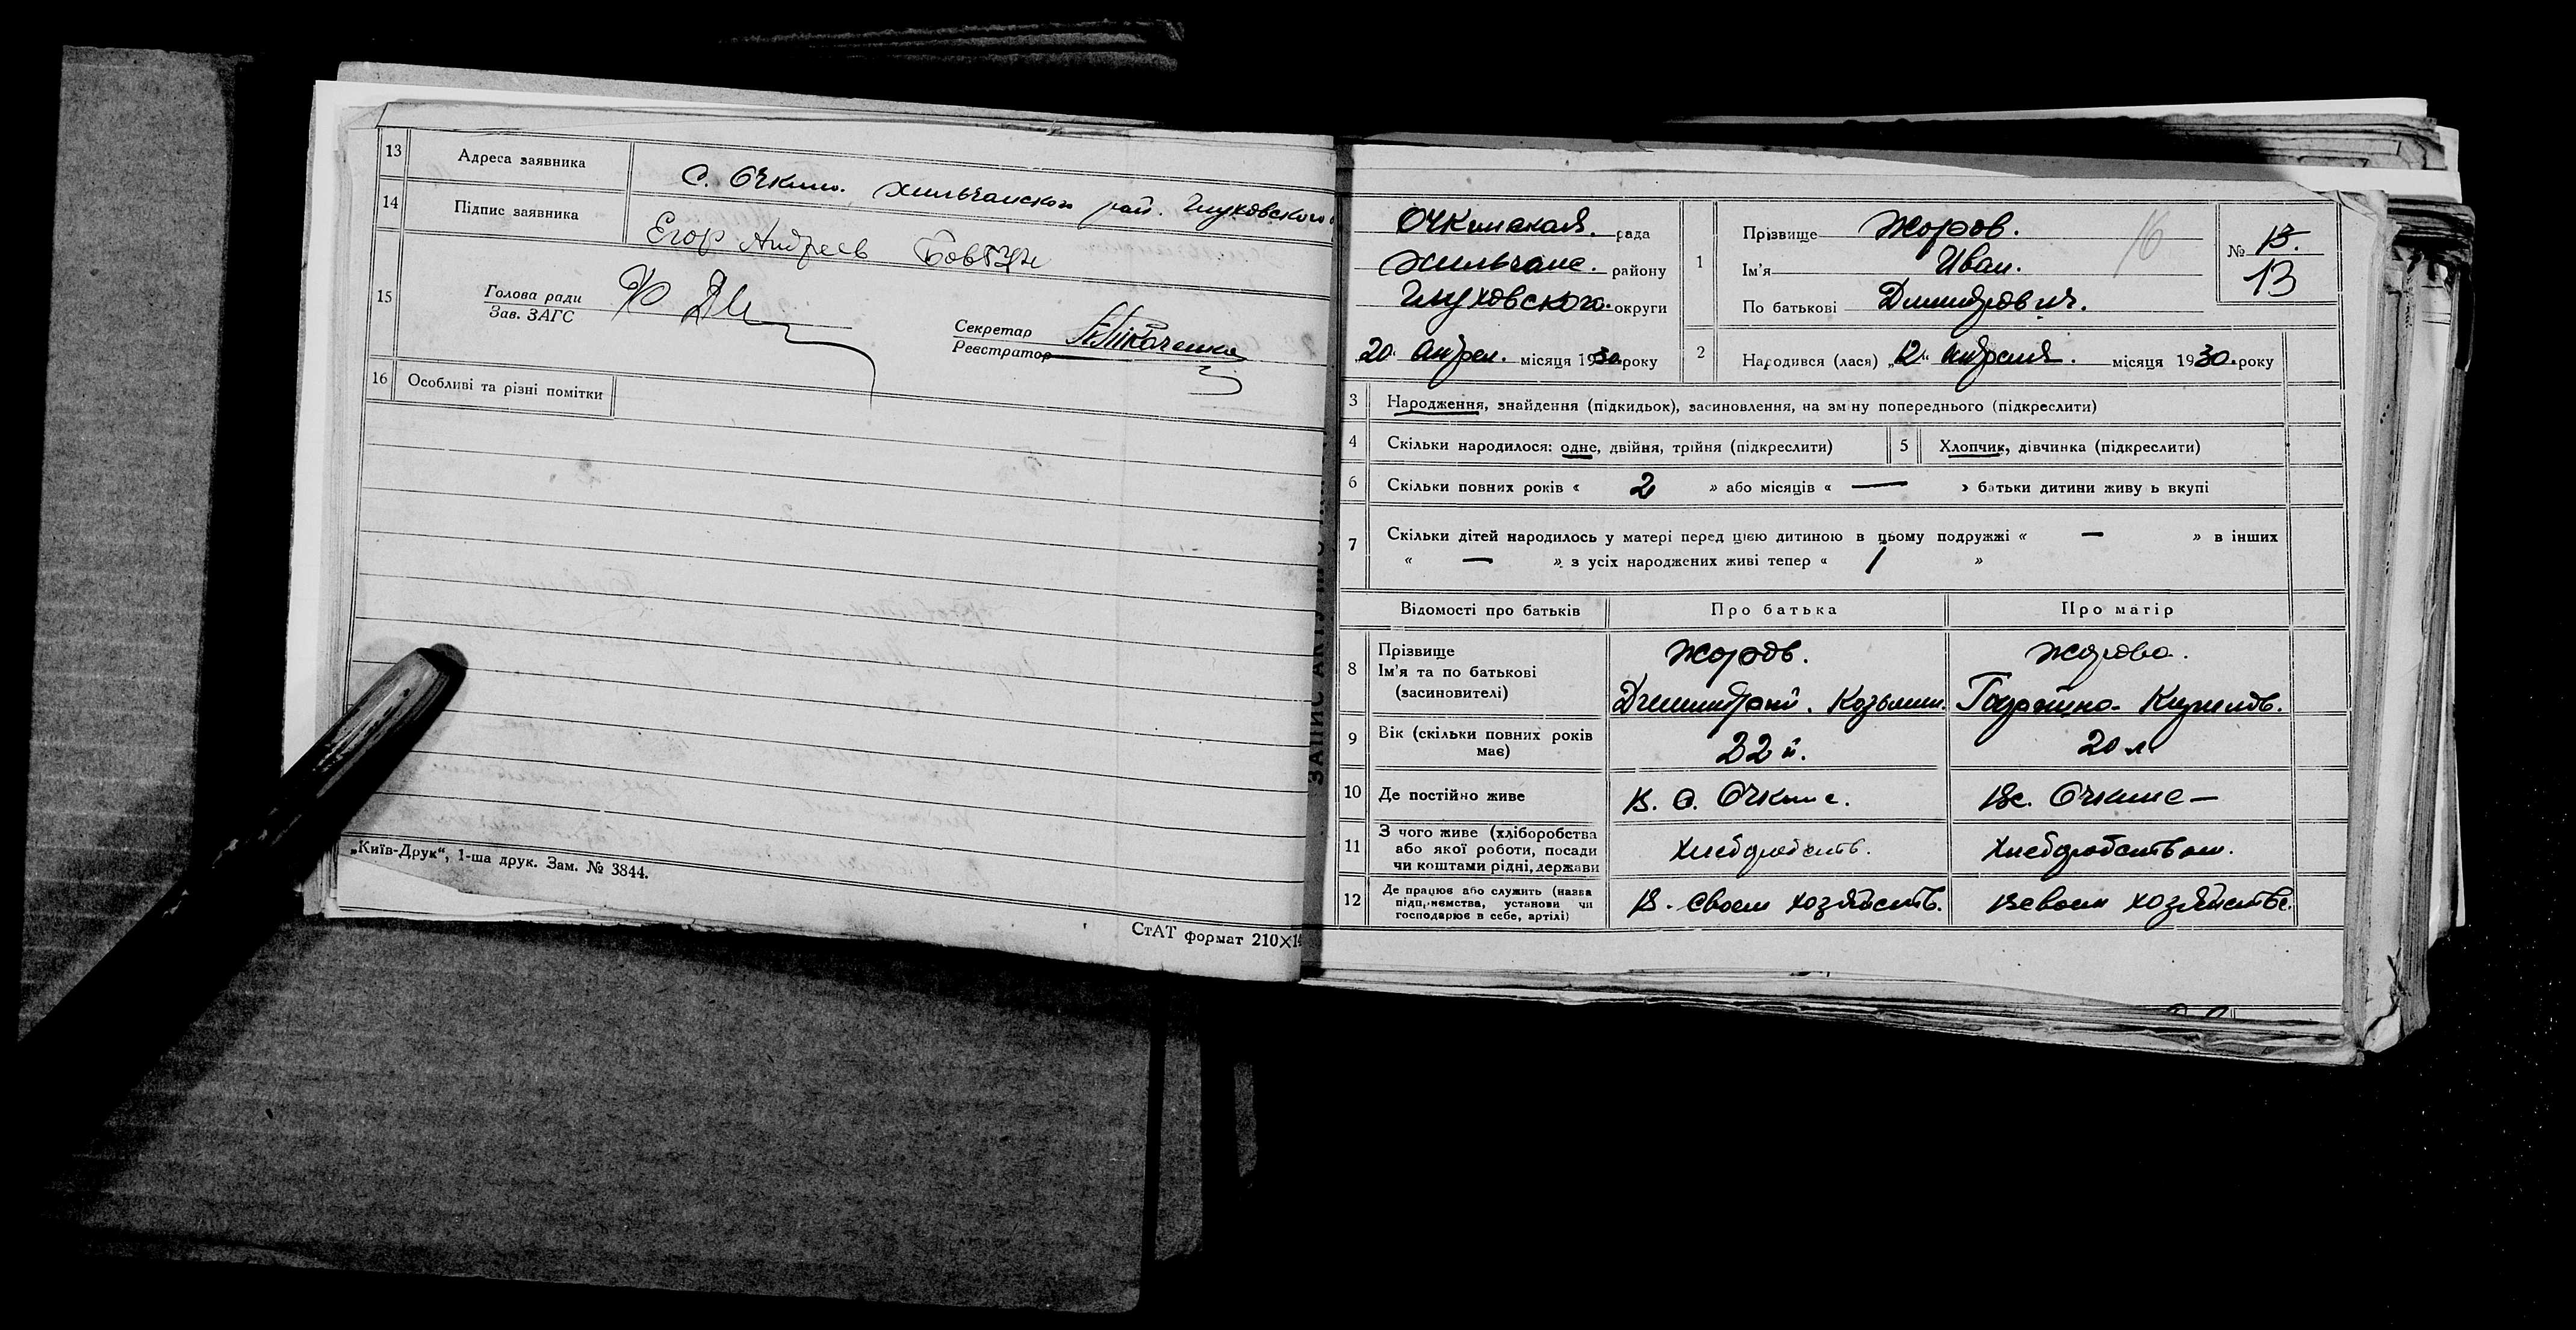 13 Адреса заявника С. Очкино. Хильчанского рай. Глуховского
14 Підпис заявника Егор Андреев
15 Голова ради
Зав. ЗАГС
Секретар
Реєстратор
16 Особливі та різні помітки
„Київ-Друк“, 1-ша друк. Зам. № 3844.
СтАТ формат 210×14
ЗАПИС АКТУ ПРО
Очкинская. рада
Хильчанс. району
Глуховского. округи
20 Апрел. місяця 1930 року
1 Прізвище Жоров.
Ім'я Иван.
По батькові Дмитрович.
16
№ 13.
13
2 Народився (лася) „12“ апреля. місяця 1930. року
3 Народження, знайдення (підкидьок), засиновлення, на зміну попереднього (підкреслити)
4 Скільки народилося: одне, двійня, трійня (підкреслити) 5 Хлопчик, дівчинка (підкреслити)
6 Скільки повних років « 2 » або місяців « — » батьки дитини живу ь вкупі
7 Скільки дітей народилось у матері перед цією дитиною в цьому подружжі « — » в інших
« — » з усіх народжених живі тепер « 1 »
Відомості про батьків Про батька Про матір
8 Прізвище Жоров. Жорова.
Ім'я та по батькові
(засиновителі) Дмитрий. Козьмин.
9 Вік (скільки повних років має) 22 л. 20 л
10 Де постійно живе В. с. Очкине. В с. Очкине —
11 З чого живе (хліборобства
або якої роботи, посади
чи коштами рідні, держави Хлеборобств. Хлеборобством.
12 Де працює або служить (назва
підприємства, установи чи
господарює в себе, артілі) В. своем хозяйств. В своем хозяйстве.